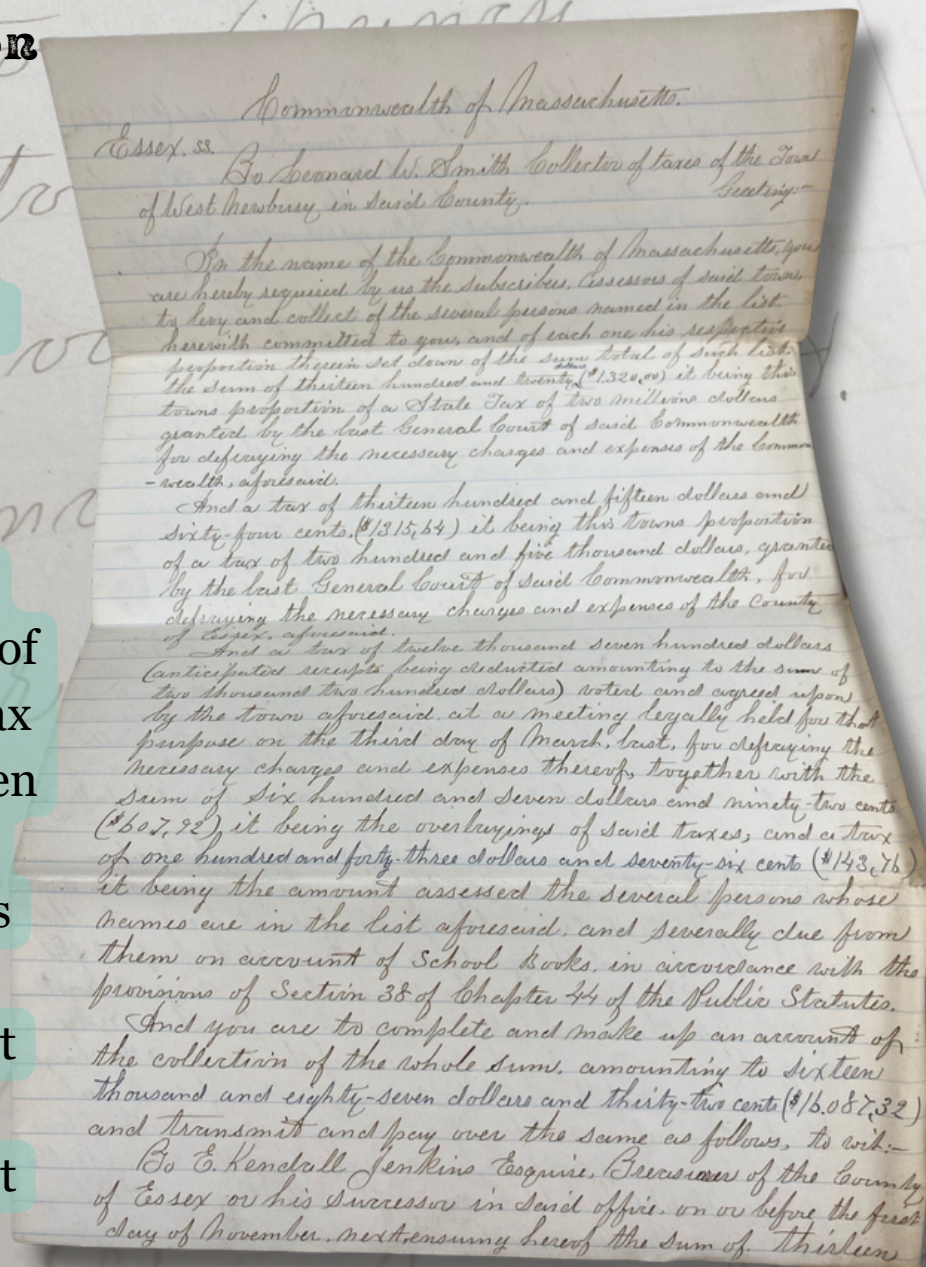 Commonwealth of Massachusetts.
Essex. ss.
To Leonard W. Smith Collector of taxes of the Town
of West Newbury in said County. Greeting:-
In the name of the Commonwealth of Massachusetts, you
are hereby required by us the subscribers, assessors of said town,
to levy and collect of the several persons named in the list
herewith committed to you, and of each one his respective
proportion therein set down of the sum total of such list.
the sum of thirteen hundred and twenty dollars ($1.320,00) it being this
towns proportion of a State Tax of two millions dollars
granted by the last General Court of said Commonwealth
for defraying the necessary charges and expenses of the Common
-wealth, aforesaid.
And a tax of thirteen hundred and fifteen dollars and
sixty-four cents, ($1315,64) it being this towns proportion
of a tax of two hundred and five thousand dollars, granted
by the last General Court of said Commonwealth, for
defraying the necessary charges and expenses of the County
of Essex, aforesaid.
And a tax of twelve thousand seven hundred dollars
(anticipated receipts being deducted amounting to the sum of
two thousand two hundred dollars) voted and agreed upon
by the town aforesaid, at a meeting legally held for that
purpose on the third day of March, last, for defraying the
necessary charges and expenses thereof, together with the
sum of six hundred and seven dollars and ninety-two cents
($607,92) it being the overlayings of said taxes; and a tax
of one hundred and forty-three dollars and seventy-six cents ($143,76)
it being the amount assessed the several persons whose
names are in the list aforesaid, and severally due from
them on account of School Books, in accordance with the
provisions of Section 38 of Chapter 44 of the Public Statutes.
And you are to complete and make up an account of
the collection of the whole sum, amounting to sixteen
thousand and eighty-seven dollars and thirty-two cents ($16.087,32)
and transmit and pay over the same as follows, to wit:-
To E. Kendall Jenkins Esquire, Treasurer of the County
of Essex or his successor in said office, on or before the first
day of November, next ensuing hereof the sum of thirteen
n
of
ax
en
s
t
t